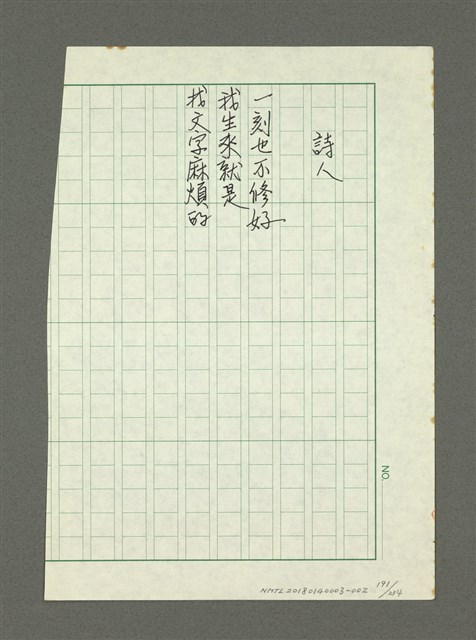 詩人
一刻也不修好
我生來就是
找文字麻煩的
NO.
NMTL20180140003-002
191/204